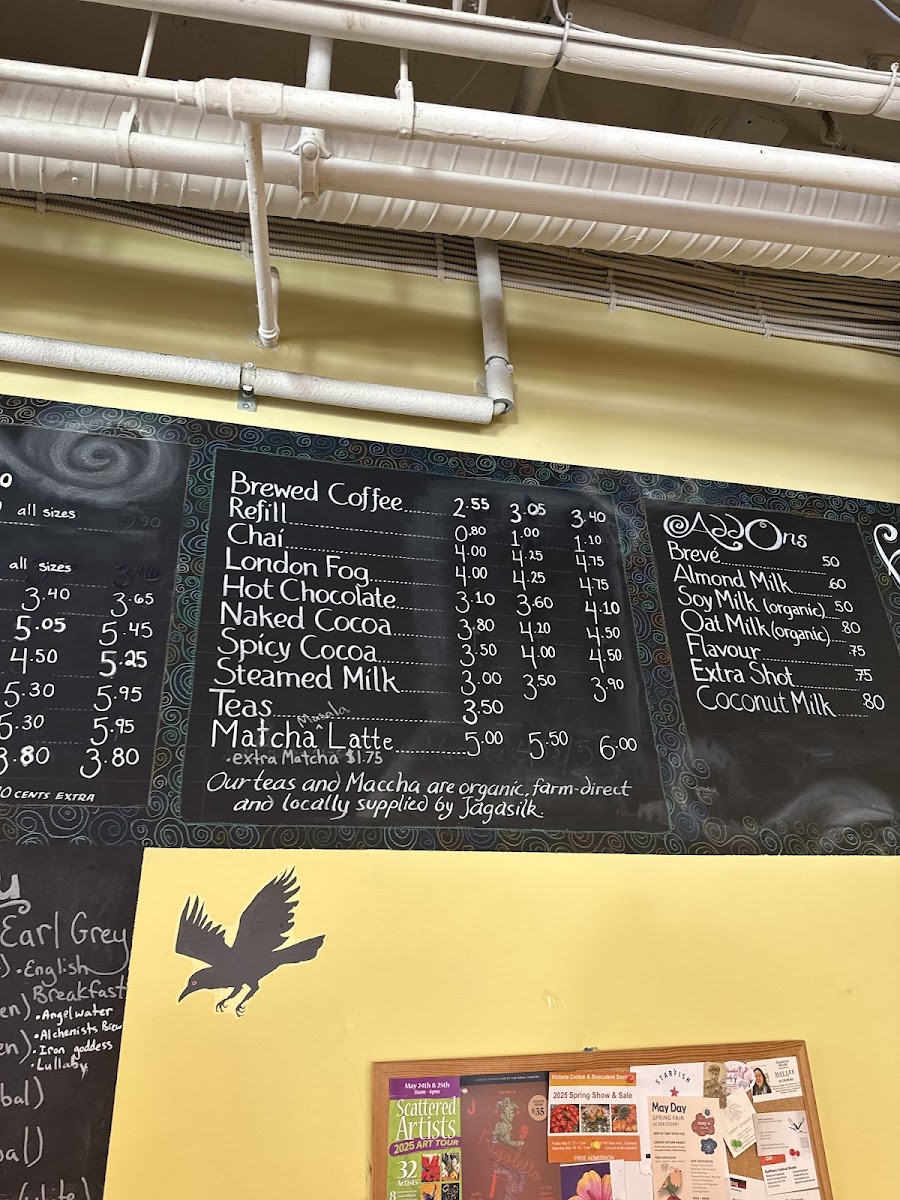 all sizes
all sizes
3.40 3.65
5.05 5.45
4.50 5.25
5.30 5.95
5.30 5.95
3.80 3.80
CENTS EXTRA
Brewed Coffee 2.55 3.05 3.40
Refill 0.80 1.00 1.10
Chai 4.00 4.25 4.75
London Fog 4.00 4.25 4.75
Hot Chocolate 3.10 3.60 4.10
Naked Cocoa 3.80 4.20 4.50
Spicy Cocoa 3.50 4.00 4.50
Steamed Milk 3.00 3.50 3.90
Teas 3.50
Masala
Matcha Latte 5.00 5.50 6.00
·extra Matcha $1.75
Our teas and Maccha are organic, farm-direct
and locally supplied by Jagasilk.
Add Ons
Brevé .50
Almond Milk .60
Soy Milk (organic) .50
Oat Milk (organic) .80
Flavour .75
Extra Shot .75
Coconut Milk .80
Earl Grey
·English
Breakfast
·Angelwater
·Alchemists Brew
·Iron goddess
·Lullaby
May 24th & 25th
11am - 4pm
Scattered
Artists
2025 ART TOUR
32
Artists
$35
Victoria Cactus & Succulent Society
2025 Spring Show & Sale
FREE ADMISSION
STARFISH
May Day
SPRING FAIR
MAY LEE